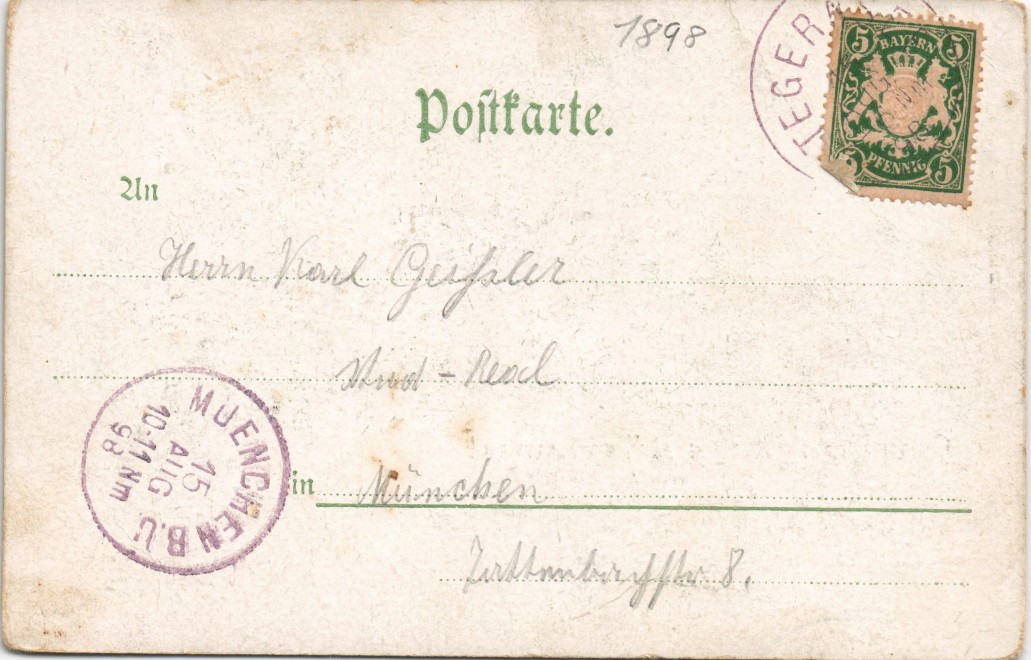 1898
TEGER
5 BAYERN 5
5 PFENNIG 5
Postkarte.
An
Herrn Karl Geißler
Stud-Real
in München
Tattenbachstr 8.
MUENCHEN B.U
15
AUG
10-11 Nm
98